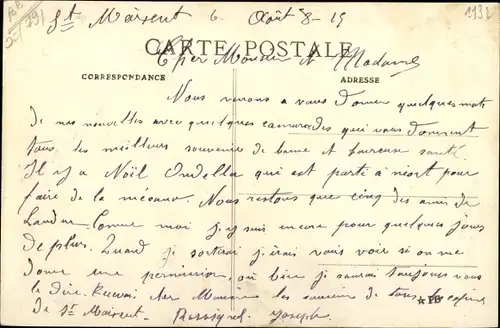 St Maixent 6 Août 8-15
1932
CARTE POSTALE
Cher Monsieur et Madame
CORRESPONDANCE
ADRESSE
Nous venons a vous donner quelques mots
de nos nouvelles avec quelques camarades qui vous donnent
tous les meilleurs souvenir de bonne et heureuse santé
Il y a Noël qui est parti a niort pour
faire de la mecano. Nous restons que cinq des amis de
comme moi j'y suis encore pour quelques jours
de plus. Quand je sortirai j'irais vous voir si on me
donne une permission, ou bien je saurai toujours vous
le dire. Recevez cher Monsieur les souvenir de tous les
de St Maixent. Joseph